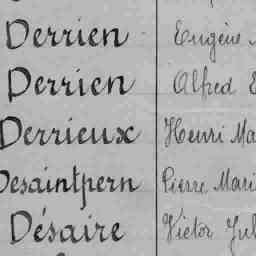 Derrien Eugène
Derrien Alfred
Derrieux Henri Ma
Desaintpern Pierre Mari
Désaire Victor Jul